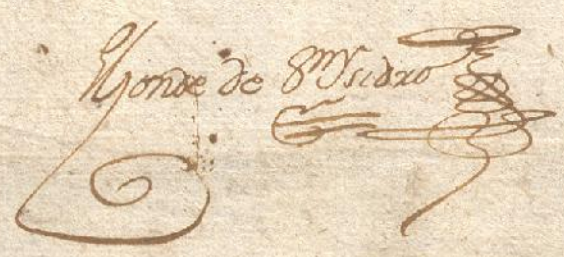 El Conde de Sn Ysidro